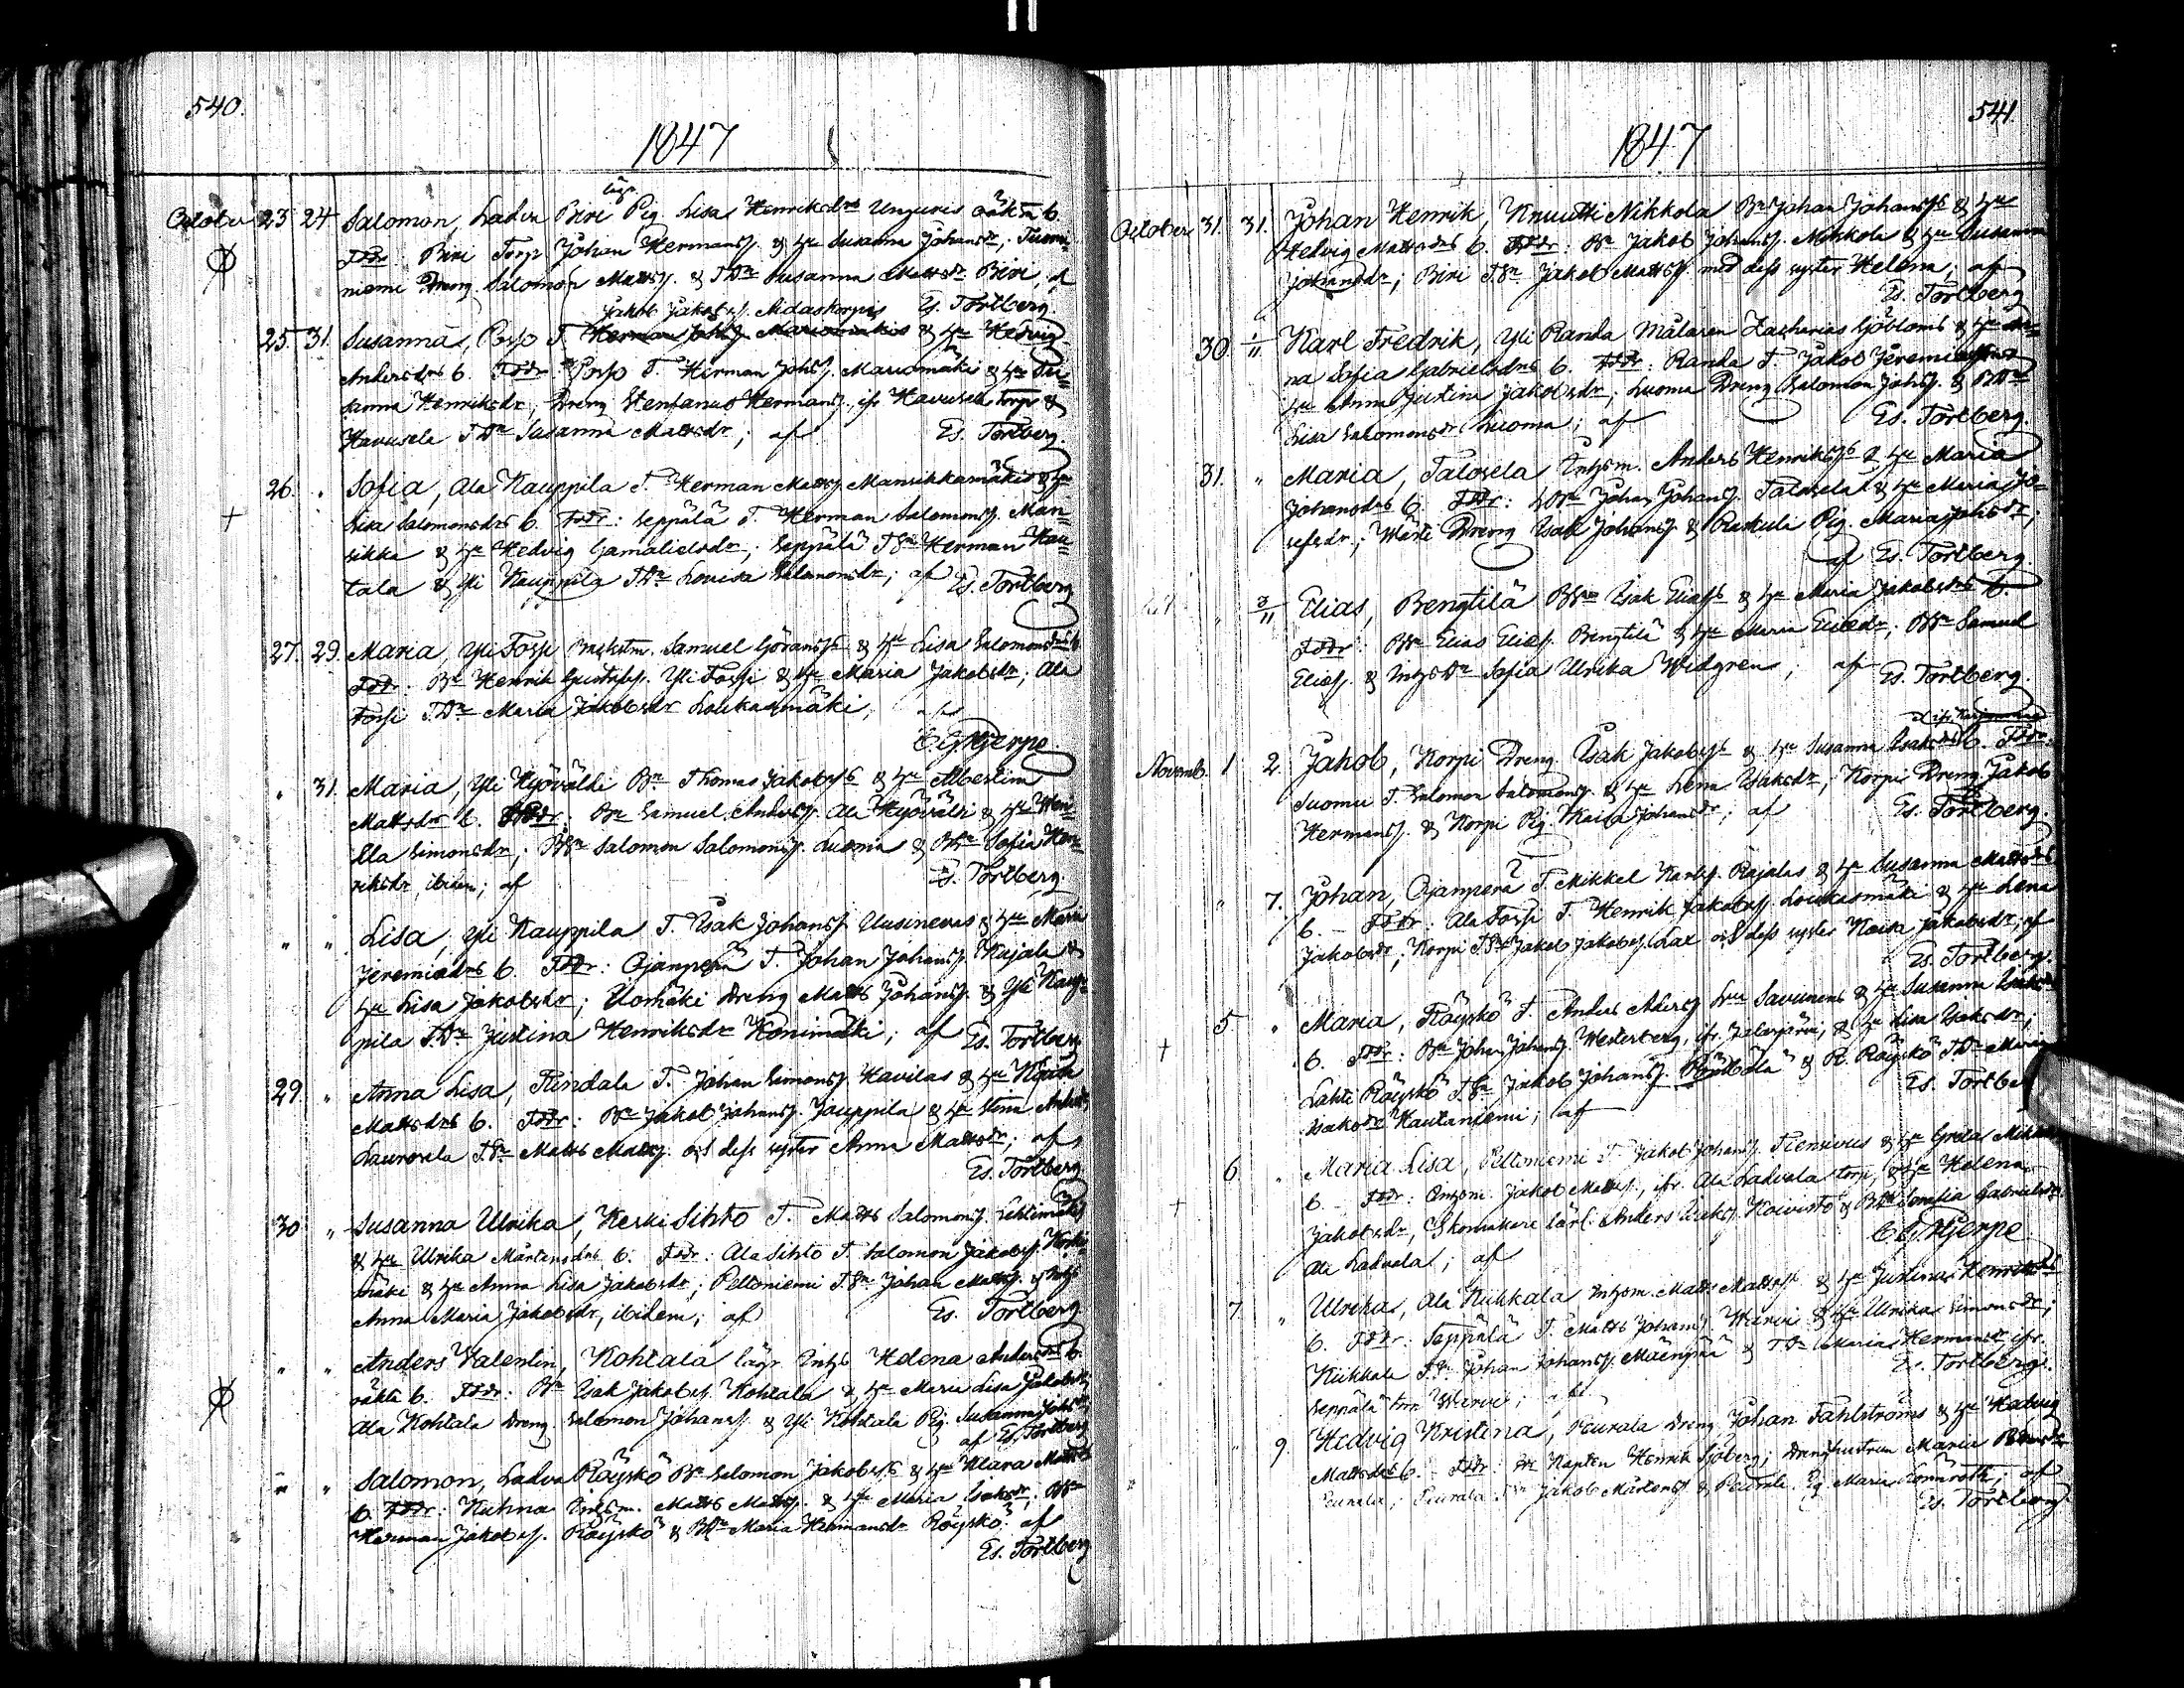 540.
1847
October 23. 24 Salomon, Ladva Biri lägr. Pig. Lisa Henriksdrs Unguris oäkta b.
Fddr: Biri Torp Johan Hermanss. & Hu Susanna Johansdr; Tuomi-
niemi Dreng Salomon Mattss. & TDr Susanna Mattsdr Biri, af
Jakob Jakobss. Sidaskorpis Es. Torlberg.
25. 31. Susanna, Porso T. Herman Johss. Mariomäkis & Hu Hedvig
Andersdrs b. Fddr: Porso T. Herman Johss. Mariomäki & Hu Su-
sanna Henriksdr, Dreng Stenfanus Hermanss. ifr Havusela torp &
Havusela TDr Susanna Mattsdr; af Es. Torlberg
26. " Sofia, Ala Kauppila T. Herman Mattss. Mansikkamäkis & Hu
Lisa Salomonsdrs b. Fddr: Seppälä T. Herman Salomonss. Man-
sikka & Hu Hedvig Gamalielsdr; Seppälä TSn Herman Hau-
tala & Yli Kauppila TDr Lovisa Salomonsdr; af Es. Torlberg
27. 29. Maria, Yli Fossi Backstm. Samuel Göranss & Hu Lisa Salomonsdrs b
Fddr: Bn Henrik Gustafss. Yli Fossi & Hu Maria Jakobsdr; Ala
Fossi TDr Maria Jakobsdr Loukasmäki; af
C G Hjerpe
" 31. Maria, Yli Hyövälti Bn Thomas Jakobss & Hu Albertina
Mattsdr b. Fddr: Bn Samuel Anderss. Ala Hyövälti & Hu Hen-
lla Simonsdr; BSn Salomon Salomonss. Luoma & BDr Sofia Hen-
riksdr ibidem; af Es. Torlberg.
" " Lisa, Yli Kauppila T. Isak Johanss. Uusinevas & Hu Maria
Jeremiædrs b. Fddr: Ojanperä T. Johan Johanss. Kajala &
Hu Lisa Jakobsdr; Uomäki Dreng Matts Johanss. & Yli Kaup-
pila TDr Justina Henriksdr Honimäki; af Es. Torlberg
29. " Anna Lisa, Rendala T. Johan Simonss. Havilas & Hu Kajsa
Mattsdrs b. Fddr: Bn Jakob Johanss. Jauppila & Hu Stina Andersdr
Laurosela TSn Matts Mattss. och dess syster Anna Mattsdr; af
Es. Torlberg
30 " Susanna Ulrika, Herki Sihto T. Matts Salomonss. Lehtimäkis
& Hu Ulrika Mårtensdrs b. Fddr: Ala Sihto T. Salomon Jakobss. Korki-
mäki & Hu Anna Lisa Jakobsdr; Peltoniemi TSn Johan Mattss. &
Anna Maria Jakobsdr, ibidem; af Es. Torlberg
" " Anders Valentin, Kohtala lägr. Inhys Helena Andersdrs b.
oäkta b. Fddr: Bn Isak Jakobss. Kohtala & Hu Maria Lisa Jakobsdr;
Ala Kohtala Dreng Salomon Johanss. & Yli Kohtala Pig. Susanna Johsdr,
af Es. Torlberg
" " Salomon, Ladva Röyskö Bn Salomon Jakobss & Hu Klara Mattsdrs
b. Fddr: Kuhna Inhsm. Matts Mattss. & Hu Maria Isaksdr; BSn
Herman Jakobss. Röyskö & BDr Maria Hermansdr Röyskö af
Es. Torlberg
541.
1847
October 31. 31. Johan Henrik, Knuutti Nikkola Bn Johan Johanss & Hu
Hedvig Mattsdrs b. Fddr: Bn Jakob Johanss. Nikkola & Hu Susanna
Johansdr; Biri TSn Jakob Mattss. med dess syster Helena; af
Es. Torlberg
30. 1/11 Karl Fredrik, Yli Randa Målaren Zacharias Sjöbloms & Hu An-
na Sofia Gabrielsdrs b. Fddr: Randa T. Jakob Jeremiass
Hu Anna Justina Jakobsdr; Luoma Dreng Salomon Johss. & BDr
Lisa Salomonsdr Luoma; af Es. Torlberg.
31. " Maria, Talosela Inhsm. Anders Henrikss & Hu Maria
Johansdrs b. Fddr: Johan Johanss. Talosela & Hu Maria Jo-
sefsdr; Wäri Dreng Isak Johanss & Raskuli Pig. Maria Johsdr;
af Es. Torlberg.
" 3/11 Elias, Bengtilä BSn Isak Eliass & Hu Maria Jakobsdrs b.
Fddr: Bn Elias Eliass. Bengtilä & Hu Maria Eliædr; BSn Samuel
Eliass. & InhsDr Sofia Ulrika Widgren; af Es. Torlberg.
Novemb. 1 2. Jakob, Korpi Dreng Isak Jakobss & Hu Susanna Isaksdrs b. Fddr:
Luomu T. Salomon Salomonss. & Hu Lena Isaksdr; Korpi Dreng Jakob
Hermanss. & Korpi Pig. Kaisa Johansdr; af Es. Torlberg.
" 7. Johan, Ojanperä T. Mikkel Karlss. Rajalas & Hu Susanna Mattsdrs
b. – Fddr: Ala Fossi T. Henrik Jakobss. Loukasmäki & Hu Lena
Jakobsdr; Korpi TSn Jakob Jakobss. Lax och dess syster Kaisa Jakobsdr; af
Es. Torlberg.
5. " Maria, Röyskö T. Anders Anderss Savunens & Hu Susanna Isaksdrs
b. Fddr: Bn Johan Johanss. Westerberg, ifr. Jalasjärvi, & Hu Lisa Isaksdr;
Lahti Röyskö TSn Jakob Johanss. & R. Röyskö TDr Maria
Isaksdr Hautaniemi; af Es. Torlberg
6 " Maria Lisa, Peltoniemi T. Jakob Johanss. Tiensivus & Hu Greta Mikaelsdrs
b. – Fddr: Inhsm. Jakob Mattss., ifr. Ala Ladvala torp, & Hu Helena
Jakobsdr, Skomakare lärl. Anders Isakss. Koivisto & BDr Sofia Gabrielsdr
Ala Ladvala; af C G Hjerpe
7 " Ulrika, Ala Kukkala Inhsm. Matts Mattss & Hu Justina Henriksdrs
b. Fddr: Seppälä T. Matts Johanss. Warvi & Hu Ulrika Simonsdr;
Kukkala TSn Johan Johanss. Mäenpää & TDr Maria Hermansdr ifr.
Seppälä torp Warvi; af Es. Torlberg.
" 9. Hedvig Kristina, Peurala Dreng Johan Fahlströms & Hu Hedvig
Mattsdrs b. – Fddr: Hr Kapten Henrik Sjöberg; Drenghustrun Maria
Peurala; Peurala TSn Jakob Mårtenss. & Peurala Pig. Maria Lönnroth; af
Es. Torlberg